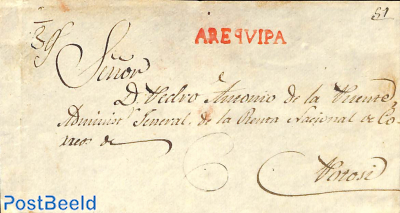 81
AREQUIPA
Señor
D. Pedro Antonio de la Puente,
Adminisr General, de la Renta Nacional de Co-
rreos de
Potosi
PostBeeld